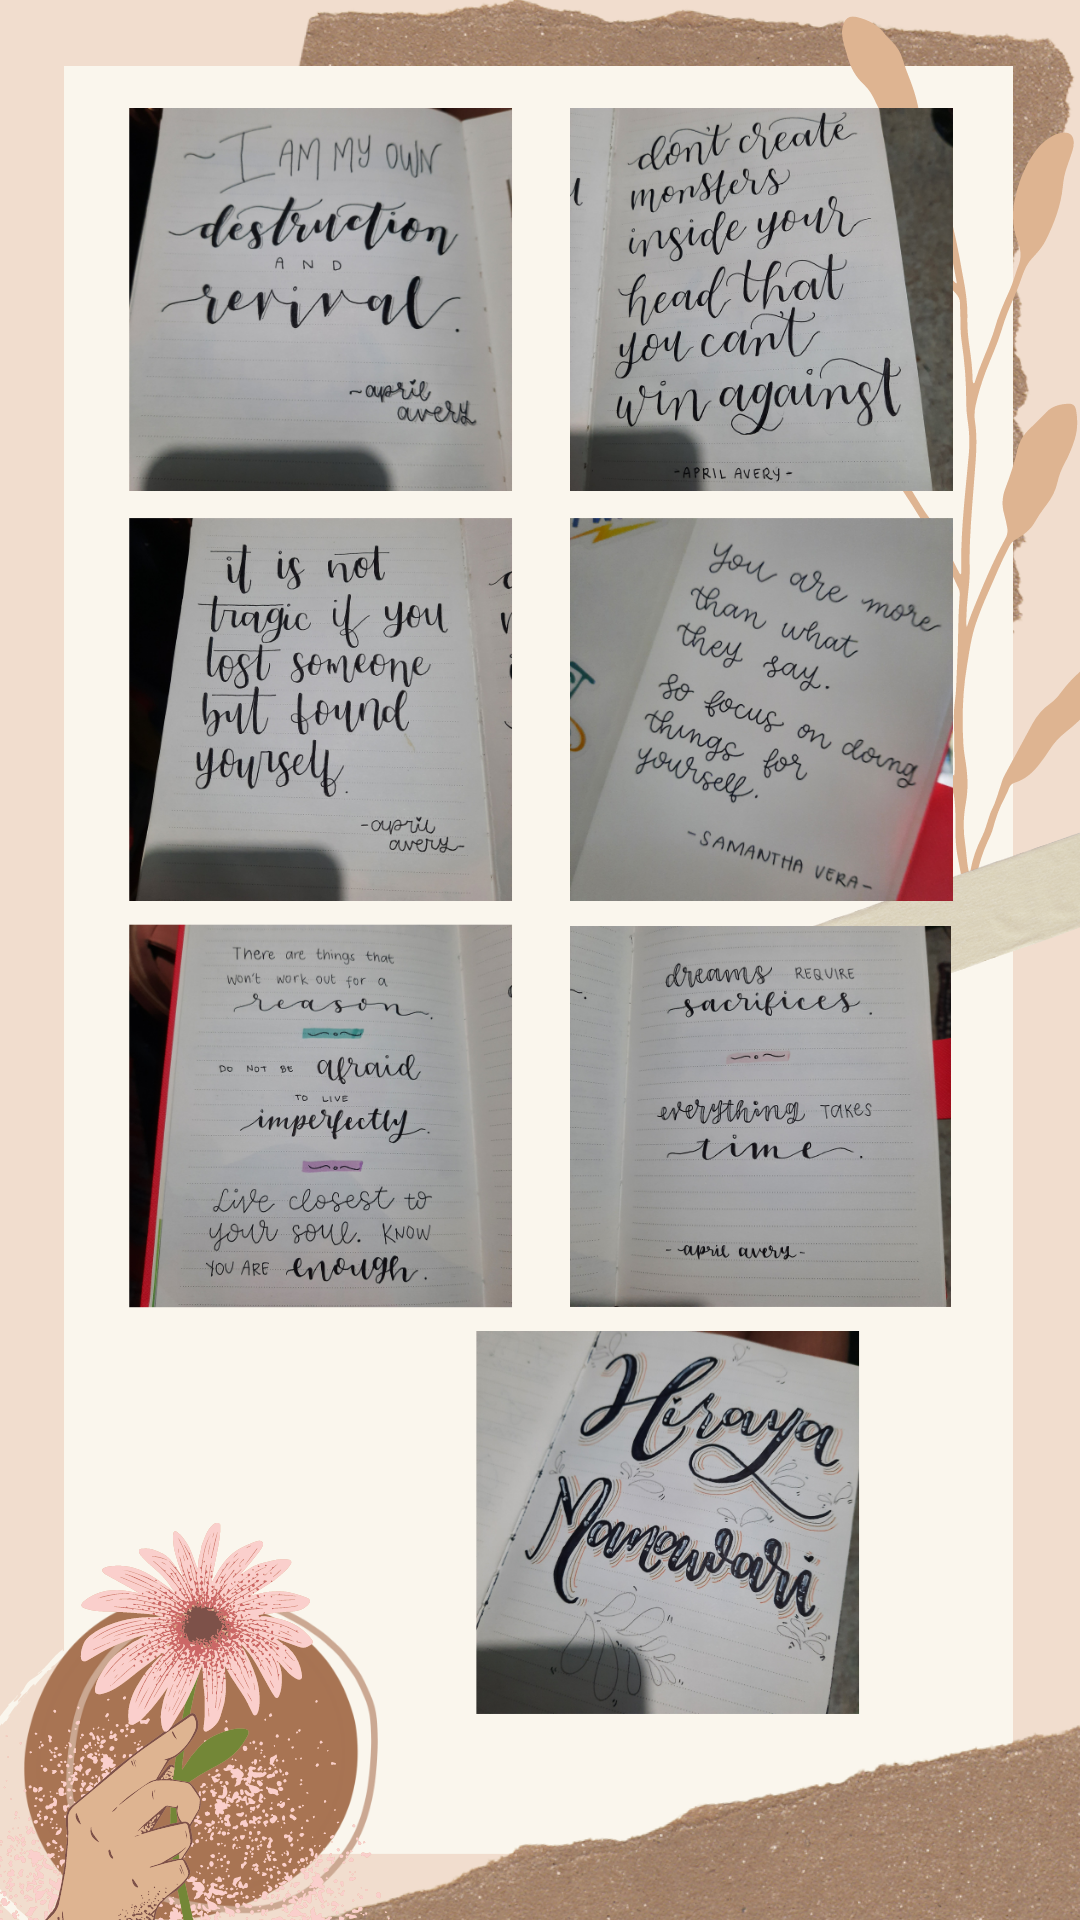 ~ I AM MY OWN
destruction
AND
revival.
~april
avery
don't create
monsters
inside your
head that
you can't
win against
-APRIL AVERY-
it is not
tragic if you
lost someone
but found
yourself.
-april
avery-
you are more
than what
they say.
so focus on doing
things for
yourself.
-SAMANTHA VERA-
There are things that
won't work out for a
reason.
DO NOT BE afraid
TO LIVE
imperfectly.
Live closest to
your soul. KNOW
YOU ARE enough.
dreams REQUIRE
sacrifices.
everything TAKES
time.
- april avery-
Hiraya
Manawari